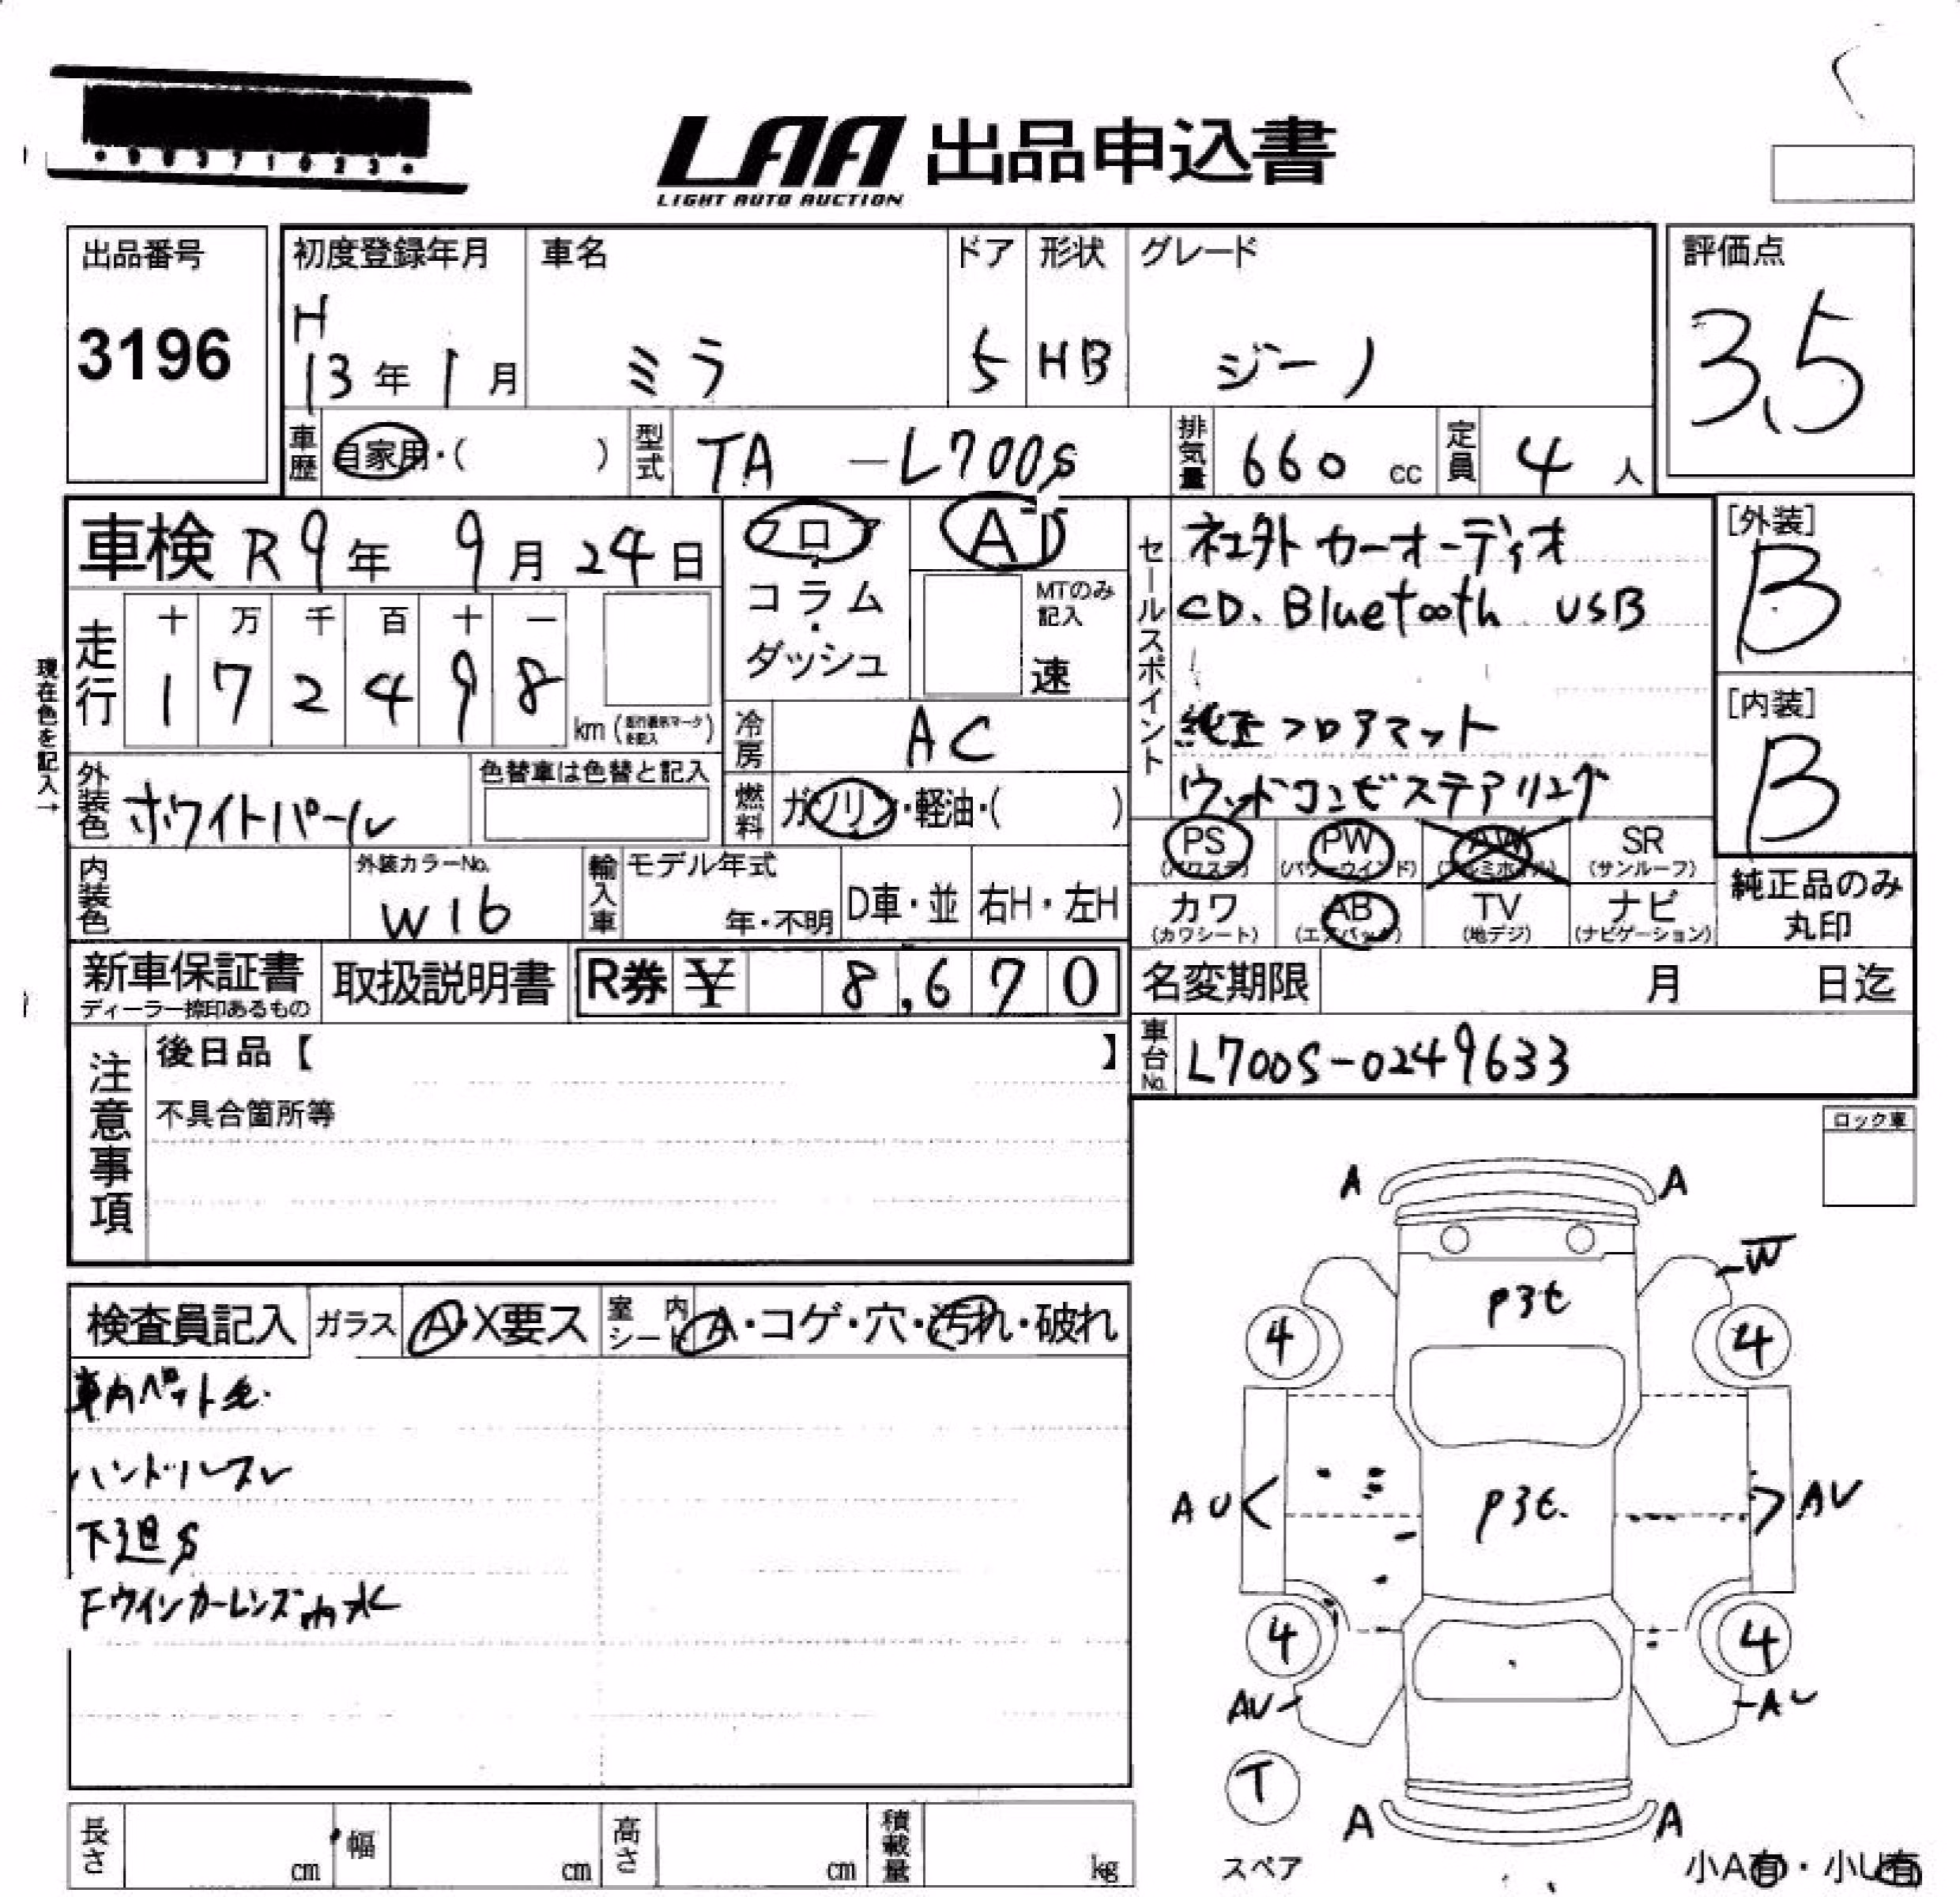 LAA 出品申込書
LIGHT AUTO AUCTION
出品番号
3196
初度登録年月
H
13年1月
車名
ミラ
ドア
5
形状
HB
グレード
ジーノ
評価点
3.5
車歴
自家用・( )
型式
TA -L700S
排気量
660 cc
定員
4人
車検 R9年 9月24日
現在色を記入→
走行
十 万 千 百 十 一
1 7 2 4 9 8
km
フロア
コラム
ダッシュ
MTのみ
記入
速
冷房
AC
燃料
ガソリン・軽油・( )
セールスポイント
社外カーオーディオ
CD. Bluetooth USB
純正フロアマット
ウッドコンビステアリング
[外装]
B
[内装]
B
外装色
ホワイトパール
色替車は色替と記入
内装色
外装カラーNo.
W16
輸入車
モデル年式
年・不明
D車・並
右H・左H
PS
(パワステ)
PW
(パワーウインド)
AW
(アルミホイル)
SR
(サンルーフ)
カワ
(カワシート)
AB
(エアバック)
TV
(地デジ)
ナビ
(ナビゲーション)
純正品のみ
丸印
新車保証書
ディーラー捺印あるもの
取扱説明書
R券 ¥ 8,670
名変期限 月 日迄
車台No.
L700S-0249633
注意事項
後日品【 】
不具合箇所等
ロック車
検査員記入
ガラス
A・X要ス
室内
シート
A・コゲ・穴・汚れ・破れ
車内ペット毛.
ハンドルスレ
下廻S
Fウインカーレンズ内水
A A
W
P3t
4 4
AU AU
P3t.
4 4
AU AU
T
スペア
A A
小A有・小U有
長さ cm
幅 cm
高さ cm
積載量 kg